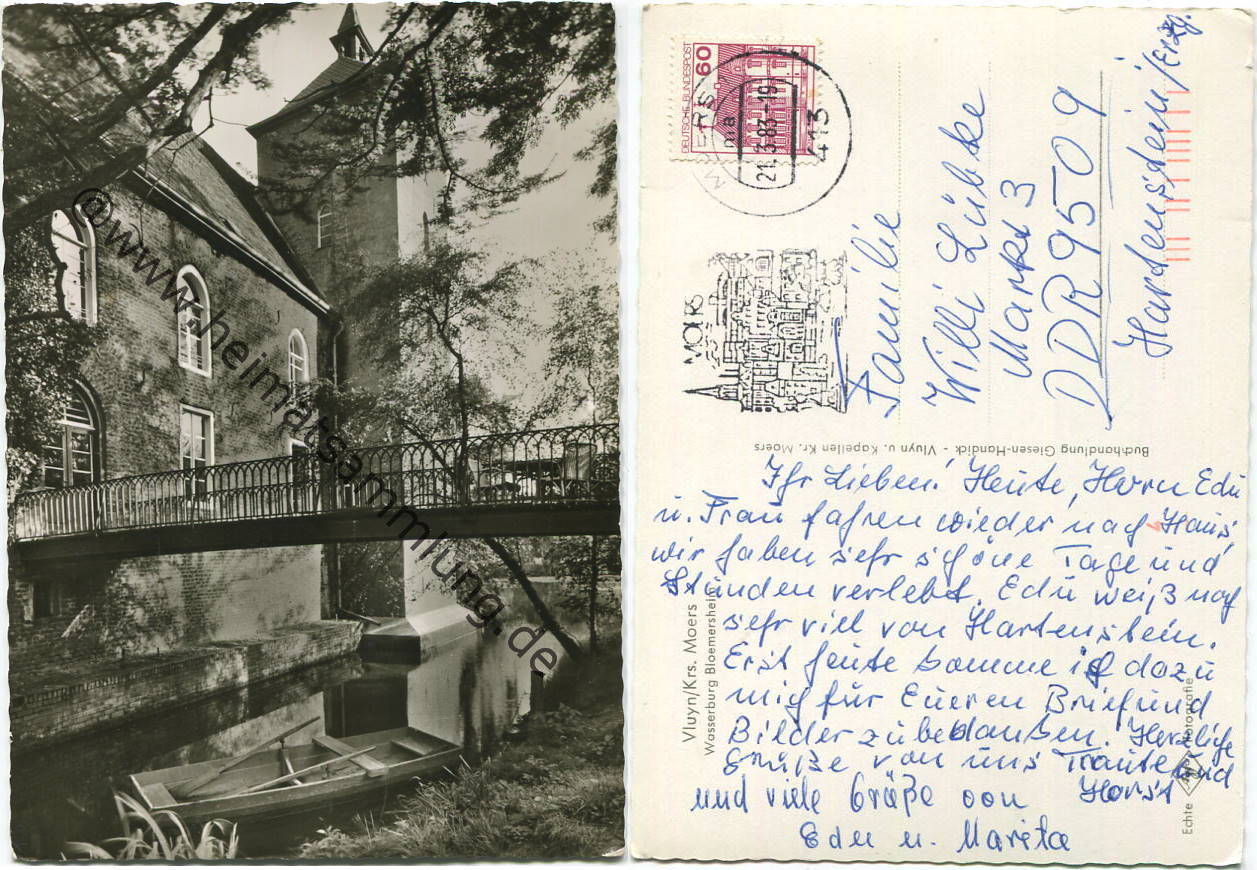 @www.heimatsammlung.de
60
DEUTSCHE BUNDESPOST
MOERS
21.3.83-19
413
MOERS
Familie
Willi Lübke
Markt 3
DDR 9509
Hardenstein/Erzg.
Buchhandlung Giesen-Handick - Vluyn u. Kapellen Kr. Moers
Ihr Lieben! Heute, Horn Edu
u. Frau fahren wieder nach Haus,
wir haben sehr schöne Tage und
Stunden verlebt. Edu weiß noch
sehr viel von Hartenstein.
Erst heute komme ich dazu
mich für Eueren Brief und
Bilder zu bedanken. Herzliche
Grüße von uns Traute und
Horst
und viele Grüße von
Edu u. Marita
Vluyn/Krs. Moers
Wasserburg Bloemersheim
Echte Photografie